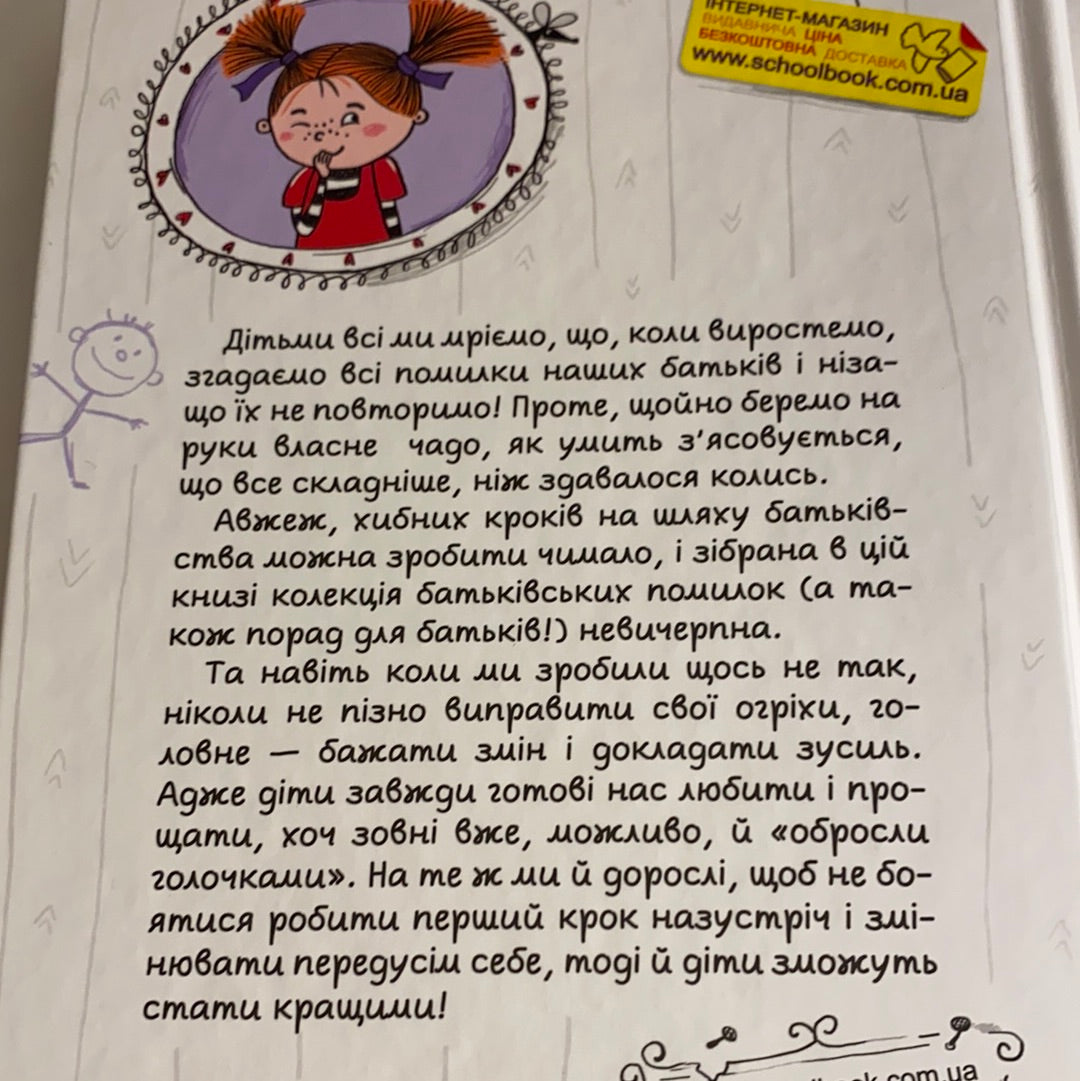 ІНТЕРНЕТ-МАГАЗИН
ВИДАВНИЧА ЦІНА
БЕЗКОШТОВНА ДОСТАВКА
www.schoolbook.com.ua
Дітьми всі ми мріємо, що, коли виростемо,
згадаємо всі помилки наших батьків і ніза-
що їх не повторимо! Проте, щойно беремо на
руки власне чадо, як умить з’ясовується,
що все складніше, ніж здавалося колись.
Авжеж, хибних кроків на шляху батьків-
ства можна зробити чимало, і зібрана в цій
книзі колекція батьківських помилок (а та-
кож порад для батьків!) невичерпна.
Та навіть коли ми зробили щось не так,
ніколи не пізно виправити свої огріхи, го-
ловне — бажати змін і докладати зусиль.
Адже діти завжди готові нас любити і про-
щати, хоч зовні вже, можливо, й «обросли
голочками». На те ж ми й дорослі, щоб не бо-
ятися робити перший крок назустріч і змі-
нювати передусім себе, тоді й діти зможуть
стати кращими!